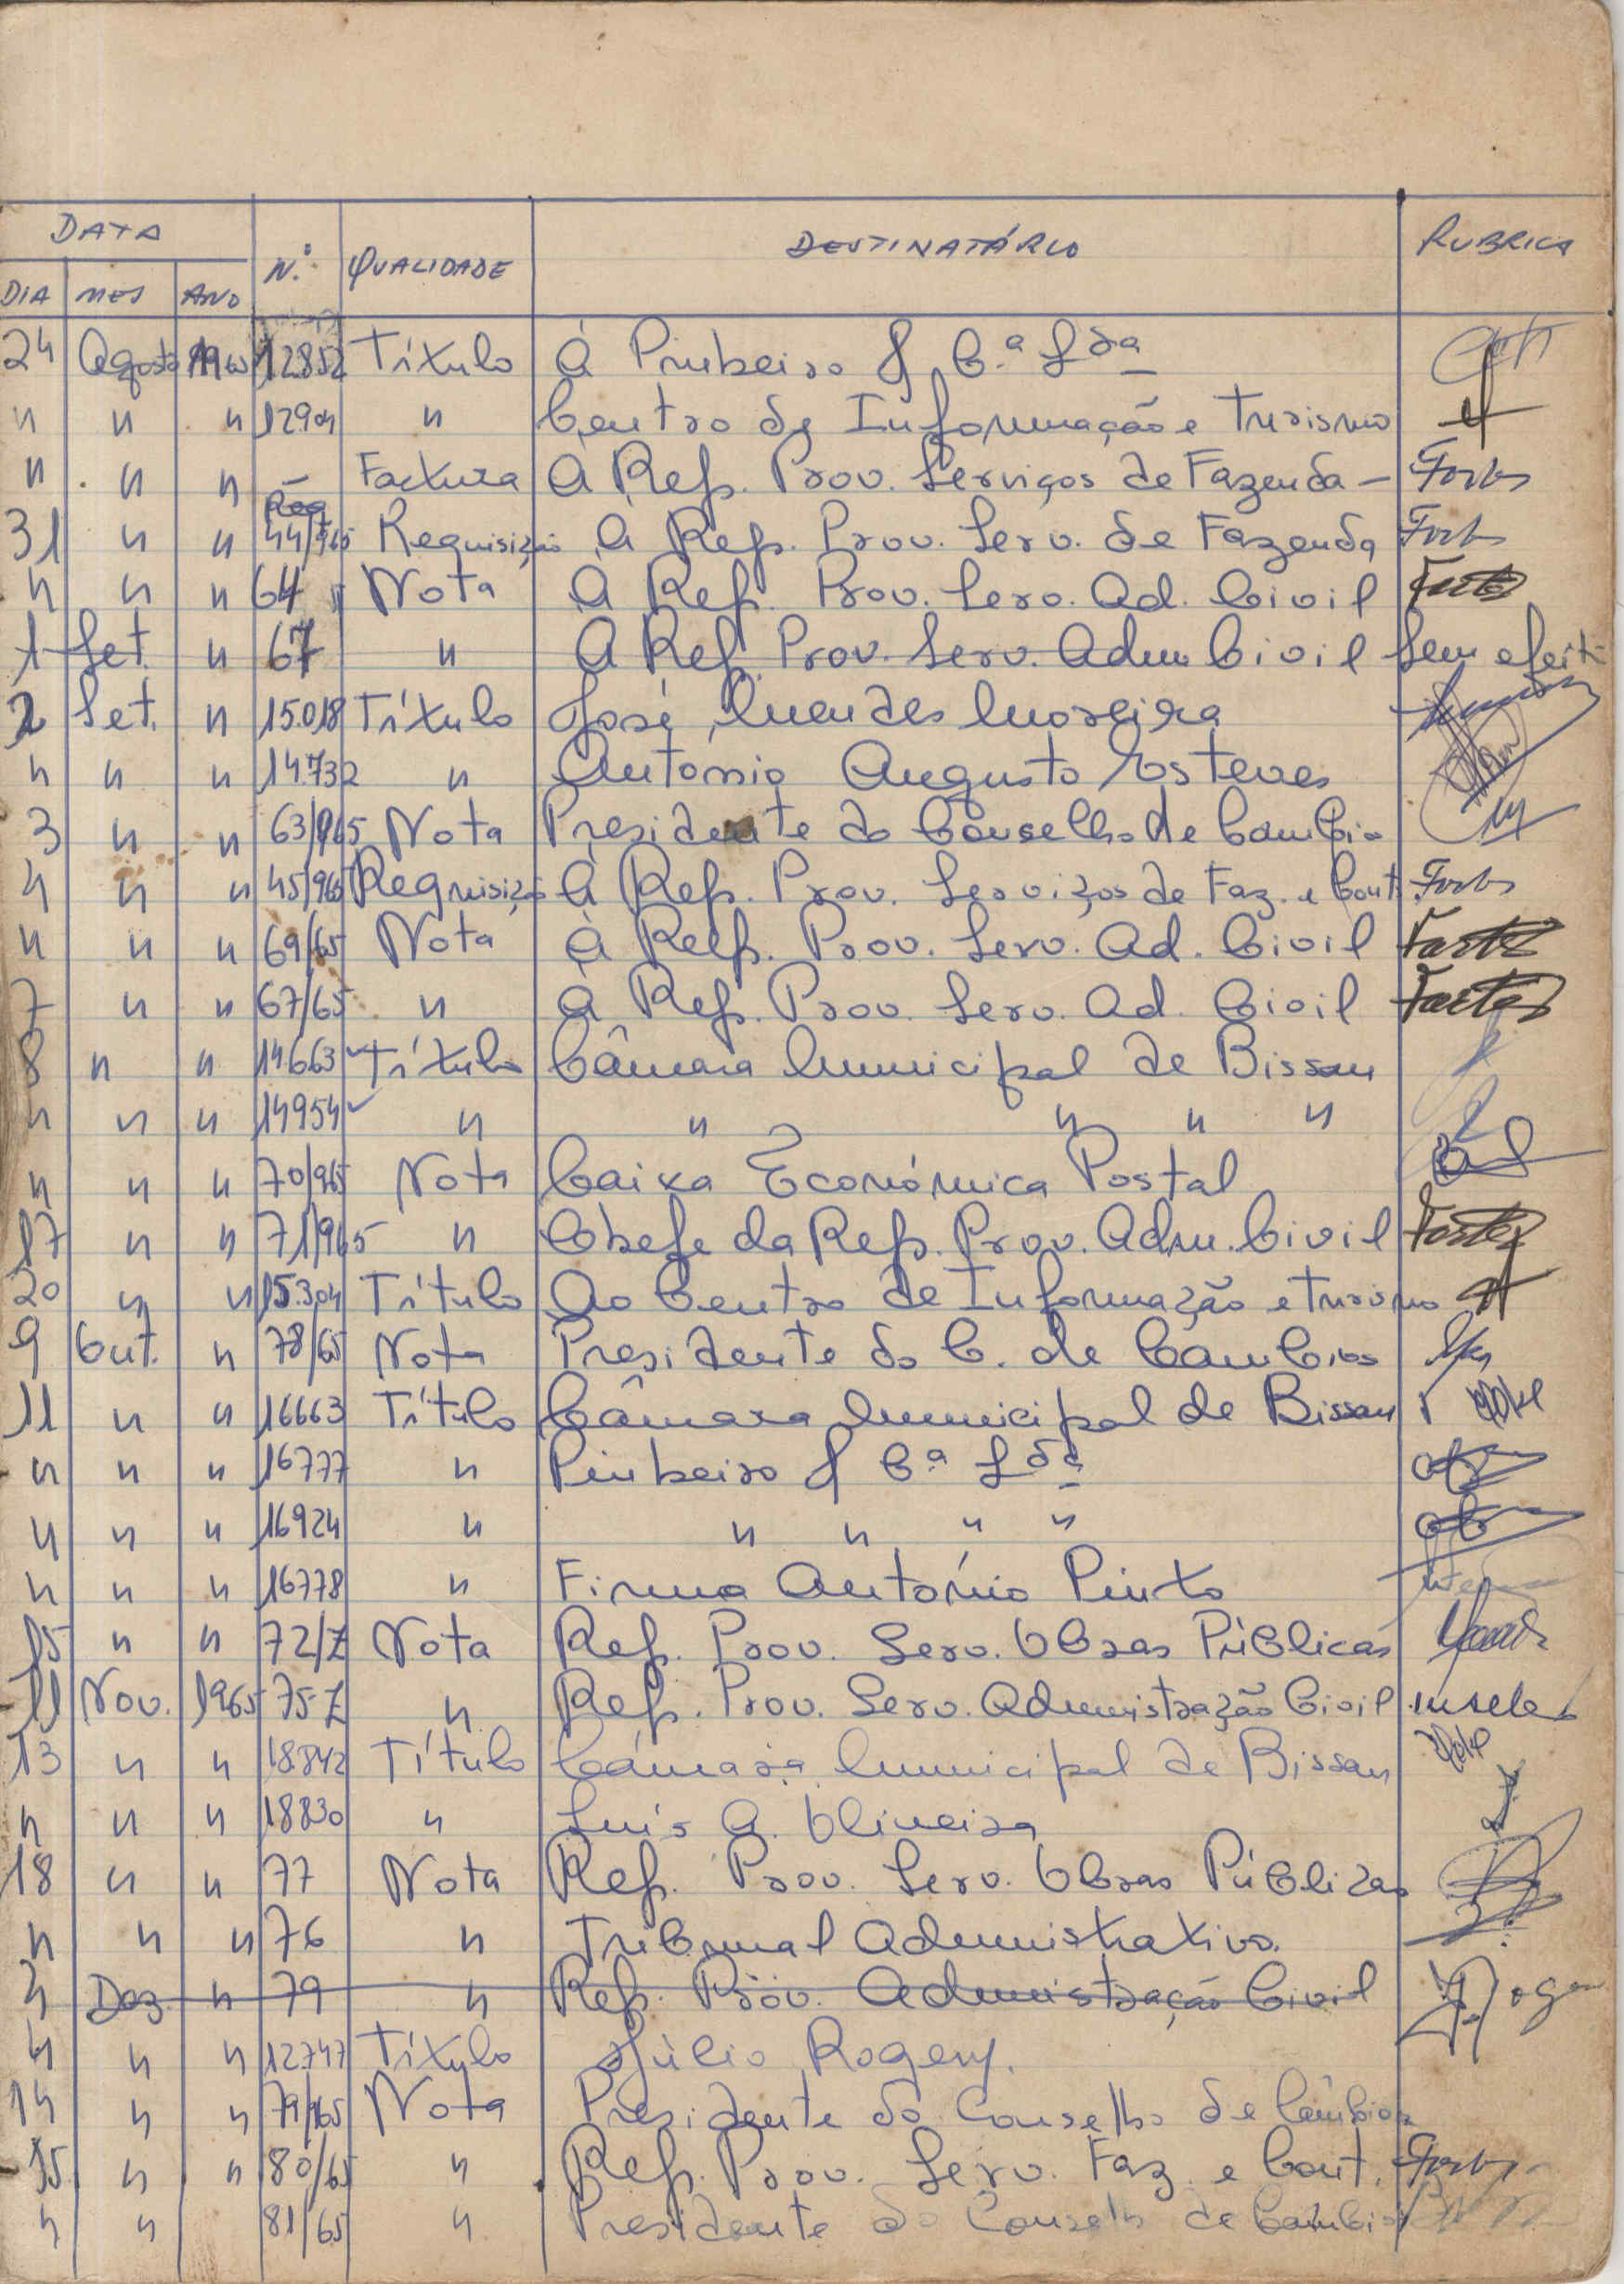 DATA N.º QUALIDADE DESTINATÁRIO RUBRICA
DIA MES ANO
24 Agosto 1965 12852 Título À Pinheiro & C.ª L.da
" " " 12904 " Centro de Informação e Turismo
" " " — Factura À Rep. Prov. Serviços de Fazenda — Fortes
31 " " Req 44/965 Requisição À Rep. Prov. Serv. de Fazenda Fortes
" " " 64 " Nota À Rep. Prov. Serv. Ad. Civil Fortes
1 Set. " 67 " À Rep. Prov. Serv. Adm Civil Sem efeito
2 Set. " 15.018 Título José Mendes Moreira
" " " 14.732 " António Augusto Esteves
3 " " 63/965 Nota Presidente do Conselho de Cambio
4 " " 45/965 Requisição À Rep. Prov. Serviços de Faz. e Cont. Fortes
" " " 69/65 Nota À Rep. Prov. Serv. Ad. Civil Fortes
7 " " 67/65 " À Rep. Prov. Serv. Ad. Civil Fortes
8 " " 14.663 Título Câmara Municipal de Bissau
" " " 14954 " " " " "
" " " 70/965 Nota Caixa Económica Postal
17 " " 71/965 " Chefe da Rep. Prov. Adm. Civil Fortes
20 " " 15.304 Título Ao Centro de Informação e Turismo
9 Out. " 78/65 Nota Presidente do C. de Cambios
11 " " 16663 Título Câmara Municipal de Bissau
" " " 16777 " Pinheiro & C.ª L.da
" " " 16924 " " " " "
" " " 16778 " Firma António Pinto
15 " " 72/Z Nota Rep. Prov. Serv. Obras Públicas
11 Nov. 1965 75-Z " Rep. Prov. Serv. Administração Civil
13 " " 18.842 Título Câmara Municipal de Bissau
" " " 18830 " Luís A. Oliveira
18 " " 77 Nota Rep. Prov. Serv. Obras Públicas
" " " 76 " Tribunal Administrativo.
4 Dez " 79 " Rep. Prov. Administração Civil
" " " 12747 Título Júlio Rogery.
14 " " 79/965 Nota Presidente do Conselho de Câmbios
15 " " 80/65 " Rep. Prov. Serv. Faz. e Cont. Fortes
" " 81/65 " Presidente do Conselho de Cambios